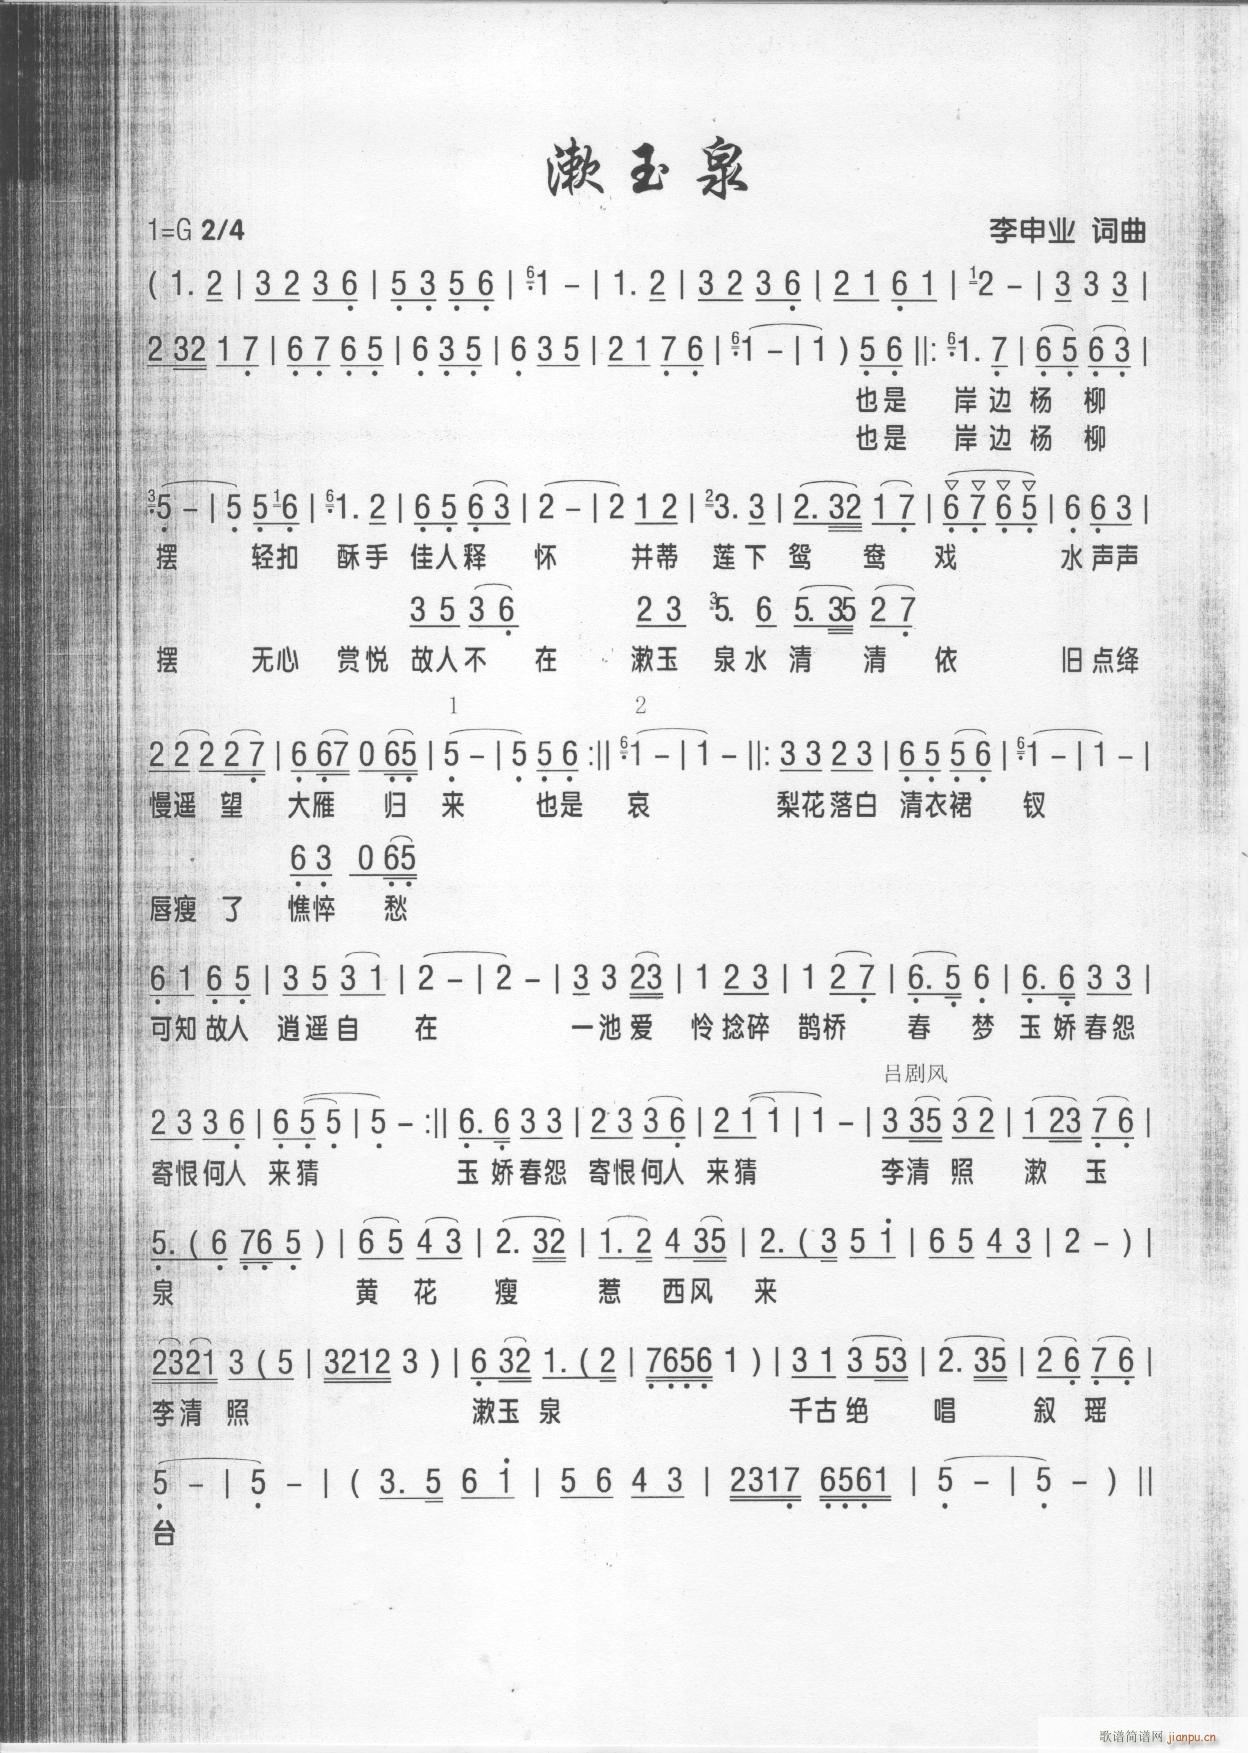 漱玉泉
1=G 2/4 李申业 词曲
(1. 2 | 3 2 3 6 | 5 3 5 6 | 6 1 - | 1. 2 | 3 2 3 6 | 2 1 6 1 | 1 2 - | 3 3 3 |
2 32 1 7 | 6 7 6 5 | 6 3 5 | 6 3 5 | 2 1 7 6 | 6 1 - | 1 ) 5 6 ||: 6 1. 7 | 6 5 6 3 |
也是 岸边杨 柳
也是 岸边杨 柳
3 5 - | 5 5 1 6 | 6 1. 2 | 6 5 6 3 | 2 - | 2 1 2 | 2 3. 3 | 2. 32 1 7 | 6 7 6 5 | 6 6 3 |
摆 轻扣 酥手 佳人释 怀 并蒂 莲下 鸳 鸯 戏 水声声
3 5 3 6 2 3 3 5. 6 5. 35 2 7
摆 无心 赏悦 故人不 在 漱玉 泉水 清 清 依 旧点绛
1 2
2 2 2 2 7 | 6 67 0 65 | 5 - | 5 5 6 :|| 6 1 - | 1 - ||: 3 3 2 3 | 6 5 5 6 | 6 1 - | 1 - |
慢遥 望 大雁 归 来 也是 哀 梨花落白 清衣裙 钗
6 3 0 65
唇瘦 了 憔悴 愁
6 1 6 5 | 3 5 3 1 | 2 - | 2 - | 3 3 23 | 1 2 3 | 1 2 7 | 6. 5 6 | 6. 6 3 3 |
可知故人 逍遥自 在 一池爱 怜捻碎 鹊桥 春 梦 玉娇春怨
吕剧风
2 3 3 6 | 6 5 5 | 5 - :|| 6. 6 3 3 | 2 3 3 6 | 2 1 1 | 1 - | 3 35 3 2 | 1 23 7 6 |
寄恨何人 来猜 玉娇春怨 寄恨何人 来猜 李清照 漱 玉
5. ( 6 76 5 ) | 6 5 4 3 | 2. 32 | 1. 2 4 35 | 2. ( 3 5 1 | 6 5 4 3 | 2 - ) |
泉 黄 花 瘦 惹 西风 来
2321 3 ( 5 | 3212 3 ) | 6 32 1. ( 2 | 7656 1 ) | 3 1 3 53 | 2. 35 | 2 6 7 6 |
李清 照 漱玉 泉 千古绝 唱 叙 瑶
5 - | 5 - | ( 3. 5 6 1 | 5 6 4 3 | 2317 6561 | 5 - | 5 - ) ||
台
歌谱简谱网 jianpu.cn